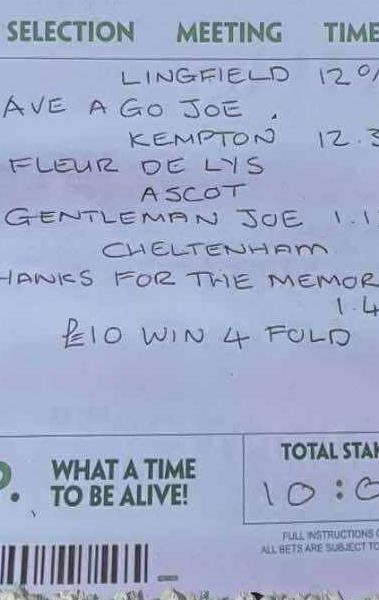 SELECTION MEETING TIME
LINGFIELD 12
AVE A GO JOE
KEMPTON 12.3
FLEUR DE LYS
ASCOT
GENTLEMAN JOE 1.1
CHELTENHAM
HANKS FOR THE MEMOR
1.4
£10 WIN 4 FOLD
WHAT A TIME
TO BE ALIVE!
TOTAL STAK
10:0
FULL INSTRUCTIONS
ALL BETS ARE SUBJECT TO